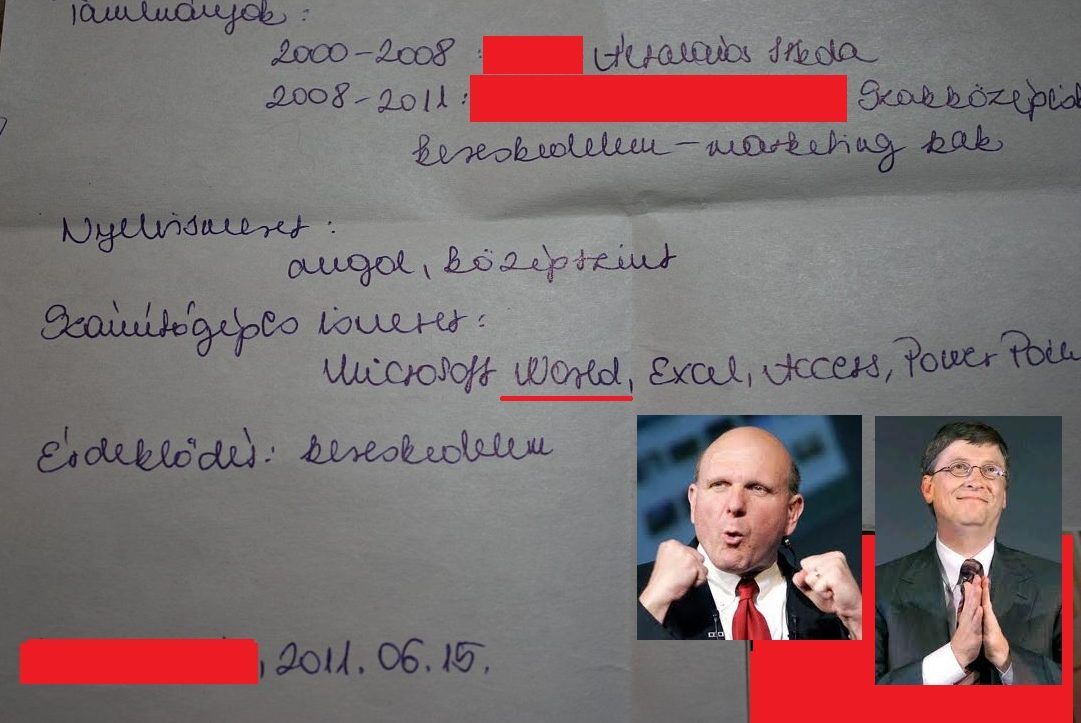 Tanulmányok :
2000-2008 : Általános Iskola
2008-2011 : Szakközépisk
kereskedelem - marketing szak
Nyelvismeret :
angol, középszint
Számítógépes ismeret :
Microsoft World, Excel, Access, Power Poin
Érdeklődés : kereskedelem
, 2011. 06. 15.